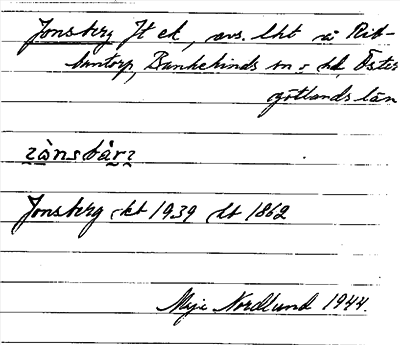 Jonsberg Jt ek, avs. lht å Rik-
kantorp, Bankekinds sn o hd, Öster
götlands län
Jonsberg ekt 1939 dt 1862
Nordlund 1944.